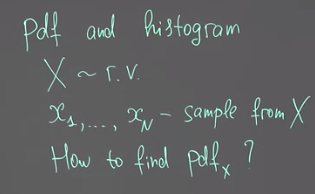 Pdf and histogram
X ~ r.v.
x₁,..., x_N - sample from X
How to find pdf_x ?